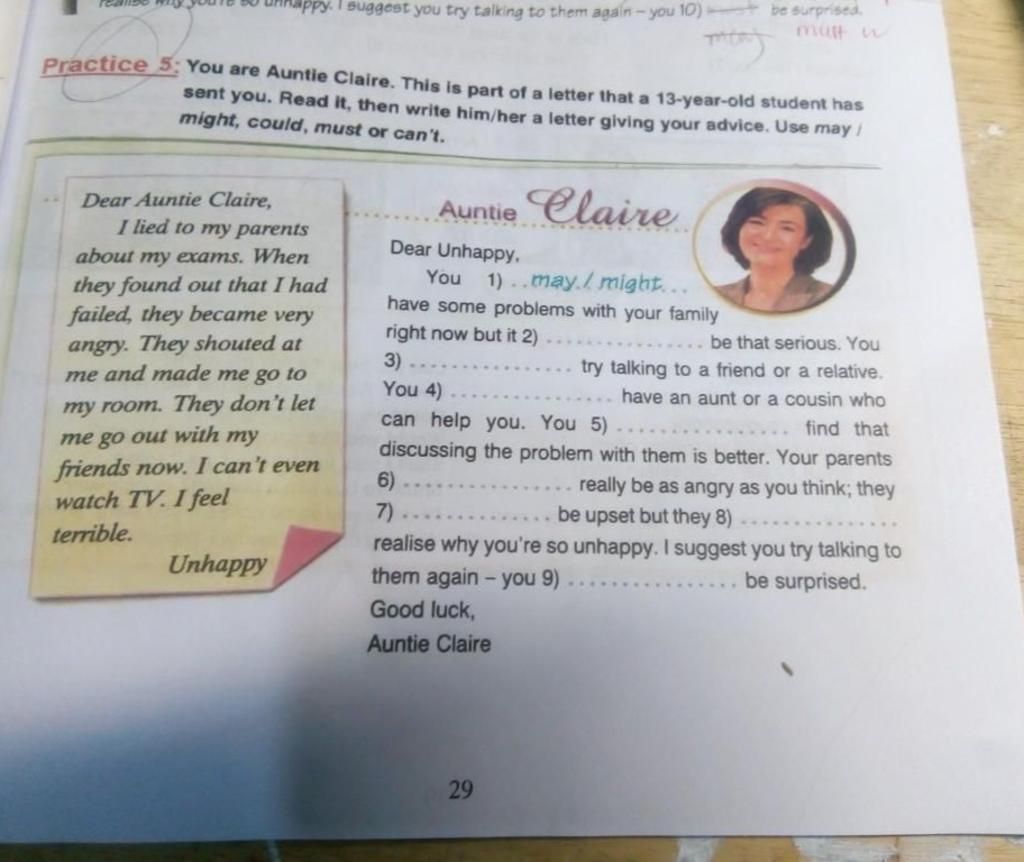 realise why you're so unhappy. I suggest you try talking to them again – you 10) be surprised.
may must
Practice 5: You are Auntie Claire. This is part of a letter that a 13-year-old student has
sent you. Read it, then write him/her a letter giving your advice. Use may /
might, could, must or can't.
Dear Auntie Claire,
I lied to my parents
about my exams. When
they found out that I had
failed, they became very
angry. They shouted at
me and made me go to
my room. They don't let
me go out with my
friends now. I can't even
watch TV. I feel
terrible.
Unhappy
Auntie Claire
Dear Unhappy,
You 1) ..may./.might...
have some problems with your family
right now but it 2) ................ be that serious. You
3) ................ try talking to a friend or a relative.
You 4) ................ have an aunt or a cousin who
can help you. You 5) ................ find that
discussing the problem with them is better. Your parents
6) ................ really be as angry as you think; they
7) ............... be upset but they 8) ...............
realise why you're so unhappy. I suggest you try talking to
them again – you 9) ................ be surprised.
Good luck,
Auntie Claire
29